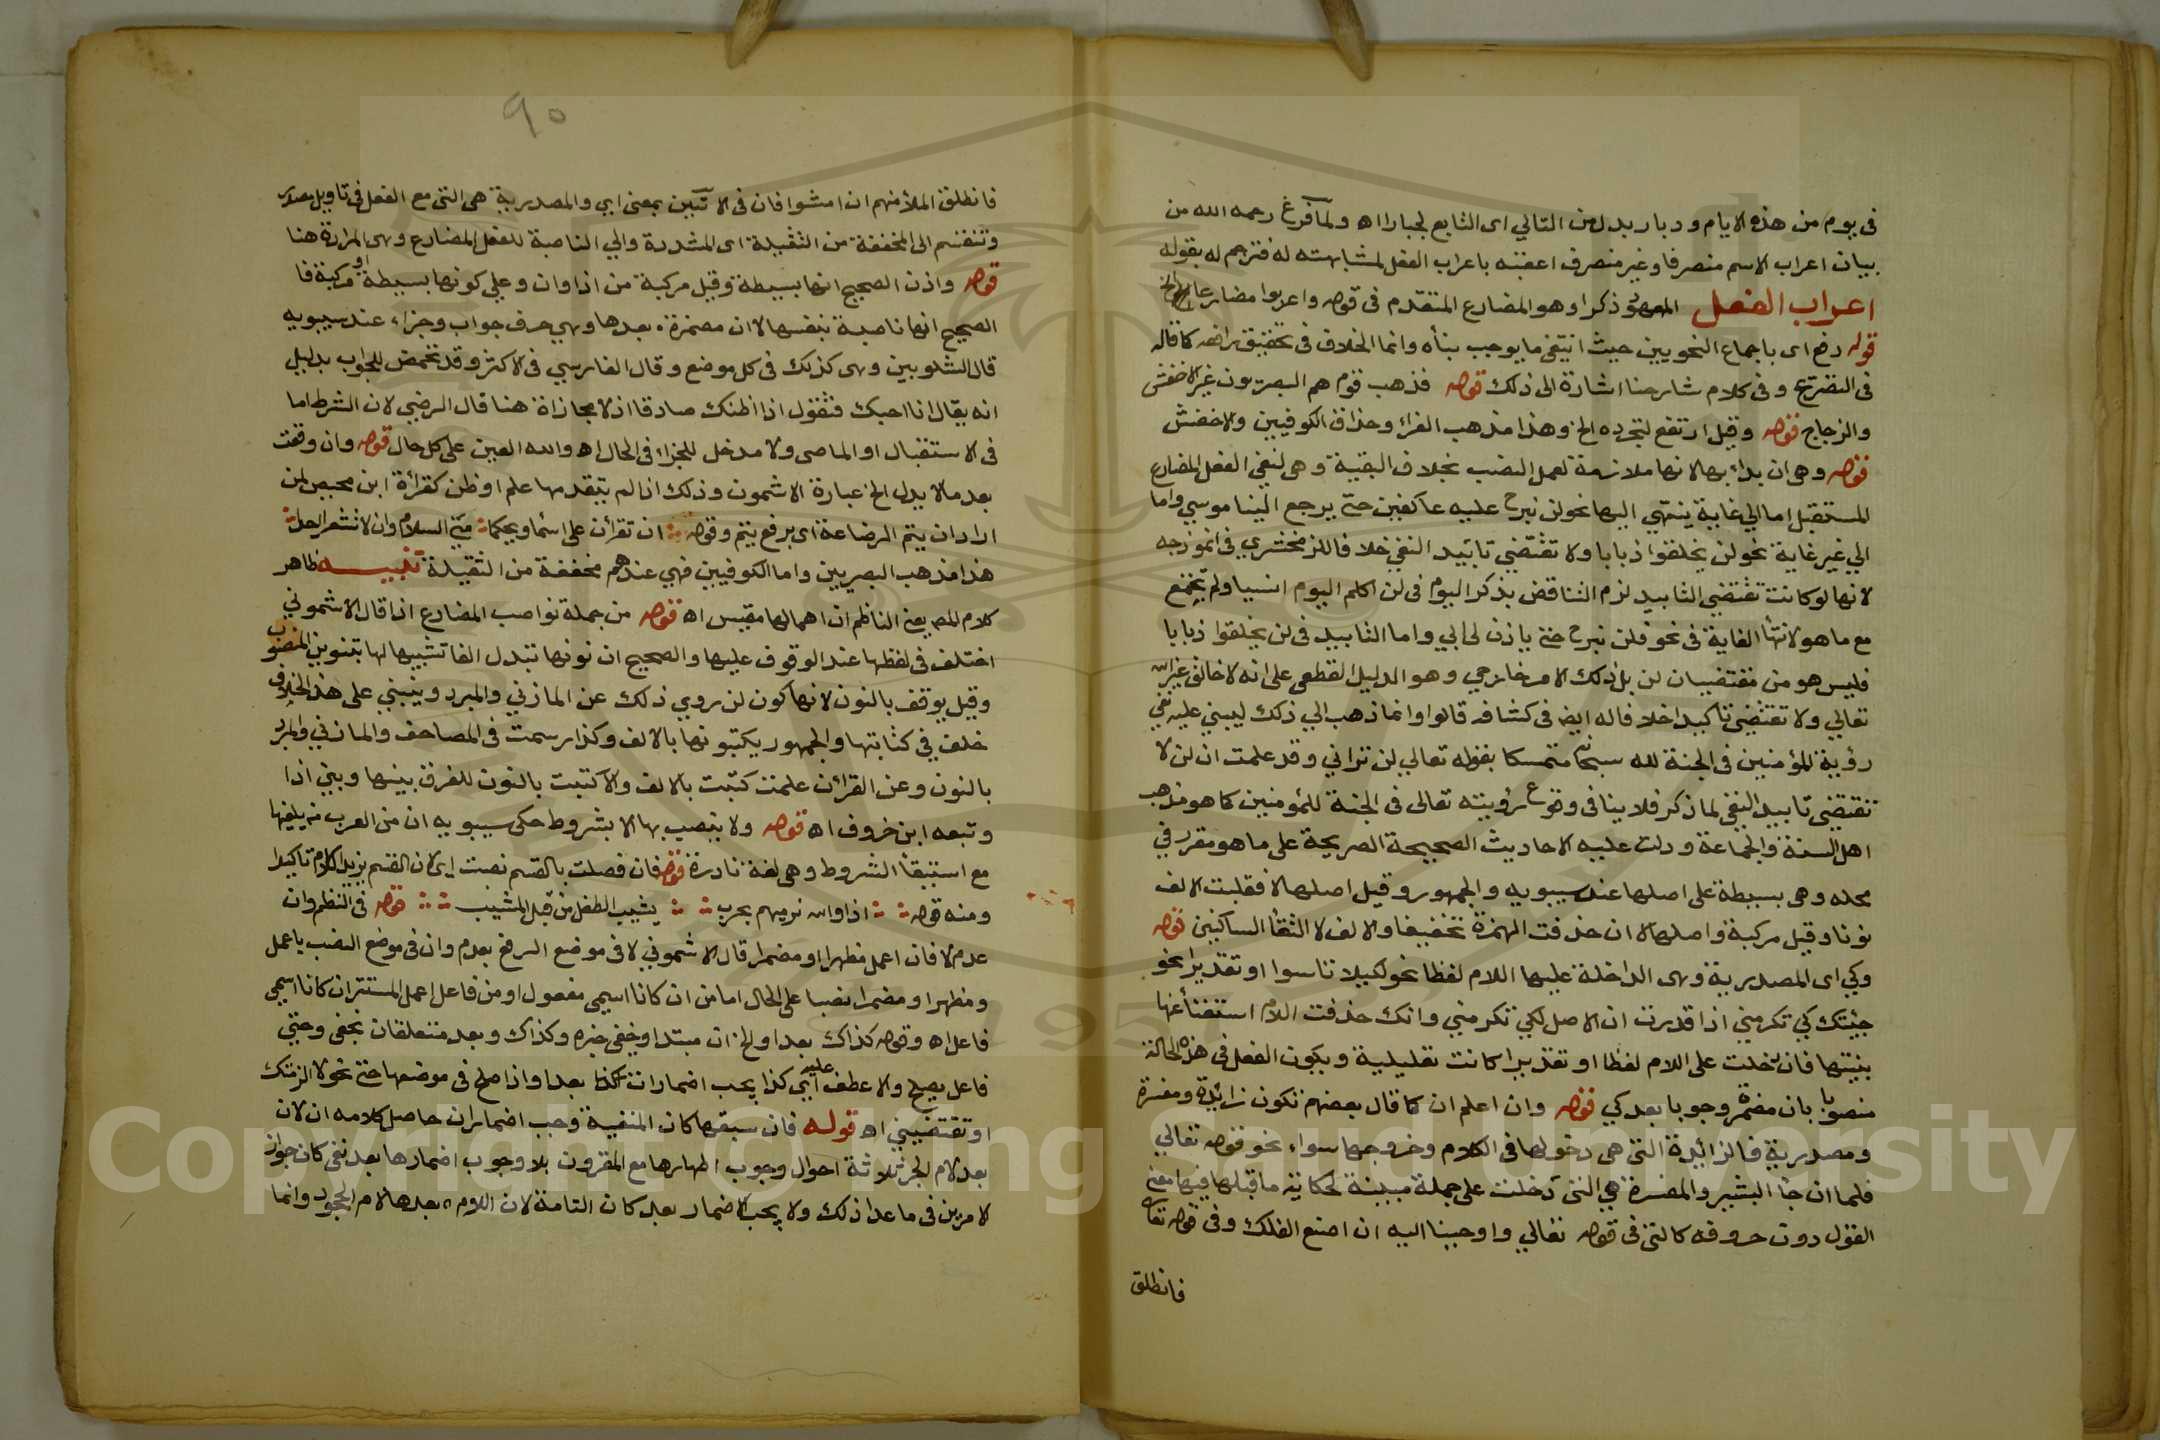 في يوم من هذه الايام ودبار بدل من التالي اى التابع لجبار اه ولما فرغ رحمه الله من
بيان اعراب الاسم منصرفا وغير منصرف اعقبه باعراب الفعل لمشابهته له فترجم له بقوله
اعراب الفعل المعهود ذكرا وهو المضارع المتقدم فى قوله واعربوا مضارعا الخ
قوله رفع اى باجماع النحويين حيث انتفى ما يوجب بناه وانما الخلاف فى تحقيق رافعه كما قاله
فى التصريح وفى كلام شارحنا اشارة الى ذلك قوله فذهب قوم هم البصريون غير الاخفش
والزجاج قوله وقيل ارتفع لتجرده الخ وهذا مذهب الفراء وحذاق الكوفيين والاخفش
قوله وهى ان بدا بها لانها ملازمة لعمل النصب بخلاف البقية وهى لنفي الفعل المضارع
المستقبل اما الي غاية ينتهي اليها نحو لن نبرح عليه عاكفين حتى يرجع الينا موسي واما
الي غير غاية نحو لن يخلقوا ذبابا ولا تقتضي تابيد النفي خلافا للزمخشري في انموذجه
لانها لو كانت تقتضي التابيد لزم التناقض بذكر اليوم فى لن اكلم اليوم انسيا ولم تجتمع
مع ما هو لانتها الغاية فى نحو فلن نبرح حتى ياذن لى ابي واما التابيد فى لن يخلقوا ذبابا
فليس هو من مقتضيات لن بل ذلك لامر خارجي وهو الدليل القطعى على انه لا خالق غير الله
تعالي ولا تقتضى تاكيدا خلافا له ايض فى كشافه قالوا وانما ذهب الي ذلك ليبني عليه نفي
رؤية المؤمنين فى الجنة لله سبحانه متمسكا بقوله تعالي لن تراني وقد علمت ان لن لا
تقتضى تابيد النفى لما ذكر فلا ينافى وقوع رؤيته تعالى فى الجنة للمؤمنين كما هو مذهب
اهل السنة والجماعة ودلت عليه الاحاديث الصحيحة الصريحة على ما هو مقرر في
محله وهى بسيطة على اصلها عند سيبويه والجمهور وقيل اصلها لا فقلبت الالف
نونا وقيل مركبة واصلها لا ان حذفت الهمزة تخفيفا والالف لالتقا الساكنين قوله
وكي اى المصدرية وهى الداخلة عليها اللام لفظا نحو لكيلا تاسوا او تقديرا نحو
جيتك كي تكرمني اذا قدرت ان الاصل لكي تكرمني وانك حذفت اللام استغنأ عنها
بنيتها فان دخلت على اللام لفظا او تقديرا كانت تعليلية ويكون الفعل فى هذه الحالة
منصوبا بان مضمرة وجوبا بعد كي قوله وان اعلم ان كما قال بعضهم تكون زايدة ومفسرة
ومصدرية فالزائدة التى هى دخولها فى الكلام وخروجها سواء نحو قوله تعالي
فلما ان جا البشير والمفسرة هي التى دخلت على جملة مبينة لحكاية ما قبلها فيها معنى
القول دون حروفه كالتى فى قوله تعالي واوحينا اليه ان اصنع الفلك وفى قوله تعالى
فانطلق
٩٠
فانطلق الملأ منهم ان امشوا فان فى الآيتين بمعنى اي والمصدرية هى التى مع الفعل فى تاويل مصدر
وتنقسم الى المخففة من الثقيلة اى المشددة والي الناصبة للفعل المضارع وهى المرادة هنا
قوله واذن الصحيح انها بسيطة وقيل مركبة من اذا وان وعلى كونها بسيطة او مركبة فا
الصحيح انها ناصبة بنفسها لا ان مضمرة بعدها وهي حرف جواب وجزاء عند سيبويه
قال الشلوبين وهى كذلك فى كل موضع وقال الفارسي فى الاكثر وقد تتمحض للجواب بدليل
انه يقال انا احبك فتقول اذا اظنك صادقا اذ لا مجازاة هنا قال الرضي لان الشرط اما
فى الاستقبال او الماضى ولا مدخل للجزاء فى الحال اه والله المعين على كل حال قوله وان وقعت
بعد ما لا يدل الخ عبارة الاشمون وذلك اذا لم يتقدمها علم او ظن كقرأة ابن محيصن لمن
اراد ان يتم الرضاعة اى برفع يتم وقوله ان تقرأن على اسماء ويحكما منى السلام وان لا تشعرا احدا
هذا مذهب البصريين واما الكوفيين فهي عندهم مخففة من الثقيلة تنبيه ظاهر
كلام المص يعنى الناظم ان اهمالها مقيس اه قوله من جملة نواصب المضارع اذا قال الاشموني
اختلف فى لفظها عند الوقوف عليها والصحيح ان نونها تبدل الفا تشبيها لها بتنوين المنصوب
وقيل يوقف بالنون لانها كنون لن روي ذلك عن المازني والمبرد وينبني على هذا الخلاف
خلف في كتابتها والجمهور يكتبونها بالالف وكذا رسمت فى المصاحف والمازني والمبرد
بالنون وعن الفرا ان علمت كتبت بالالف والا كتبت بالنون للفرق بينها وبين اذا
وتبعه ابن خروف اه قوله ولا ينصب بها الا بشروط حكى سيبويه ان من العرب من يلغيها
مع استيفأ الشروط وهى لغة نادرة قوله فان فصلت بالقسم نصبت اى لان القسم يزيد الكلام تاكيدا
ومنه قوله اذا والله نرميهم بحرب يشيب الطفل من قبل المشيب قوله فى النظم وان
عدم لا فان اعمل مظهرا او مضمرا قال الاشموني لا فى موضع الرفع بعدم وان فى موضع النصب باعمل
ومظهرا ومضمرا نصبا على الحال اما من ان كانا اسمي مفعول او من فاعل اعمل المستتر ان كانا اسمي
فاعل اه وقوله كذاك بعد او الخ ان مبتدا وخفى خبره وكذاك وبعد متعلقان بخفى وحتى
فاعل يصلح والا عطف عليه اي كذا يجب اضمار ان بعد او اذا صلح فى موضعها حتى نحو لالزمنك
او تقتضيني اه قوله فان سبقها كان المنفية وجب اضمار ان حاصل كلامه ان لان
بعد لام الجر ثلاثة احوال وجوب اظهارها مع المقرون بلا ووجوب اضمارها بعد نفى كان جواز
الامرين فى ما عدا ذلك ولا يجب الاضمار بعد كان التامة لان اللام بعدها لام الجحود وانما